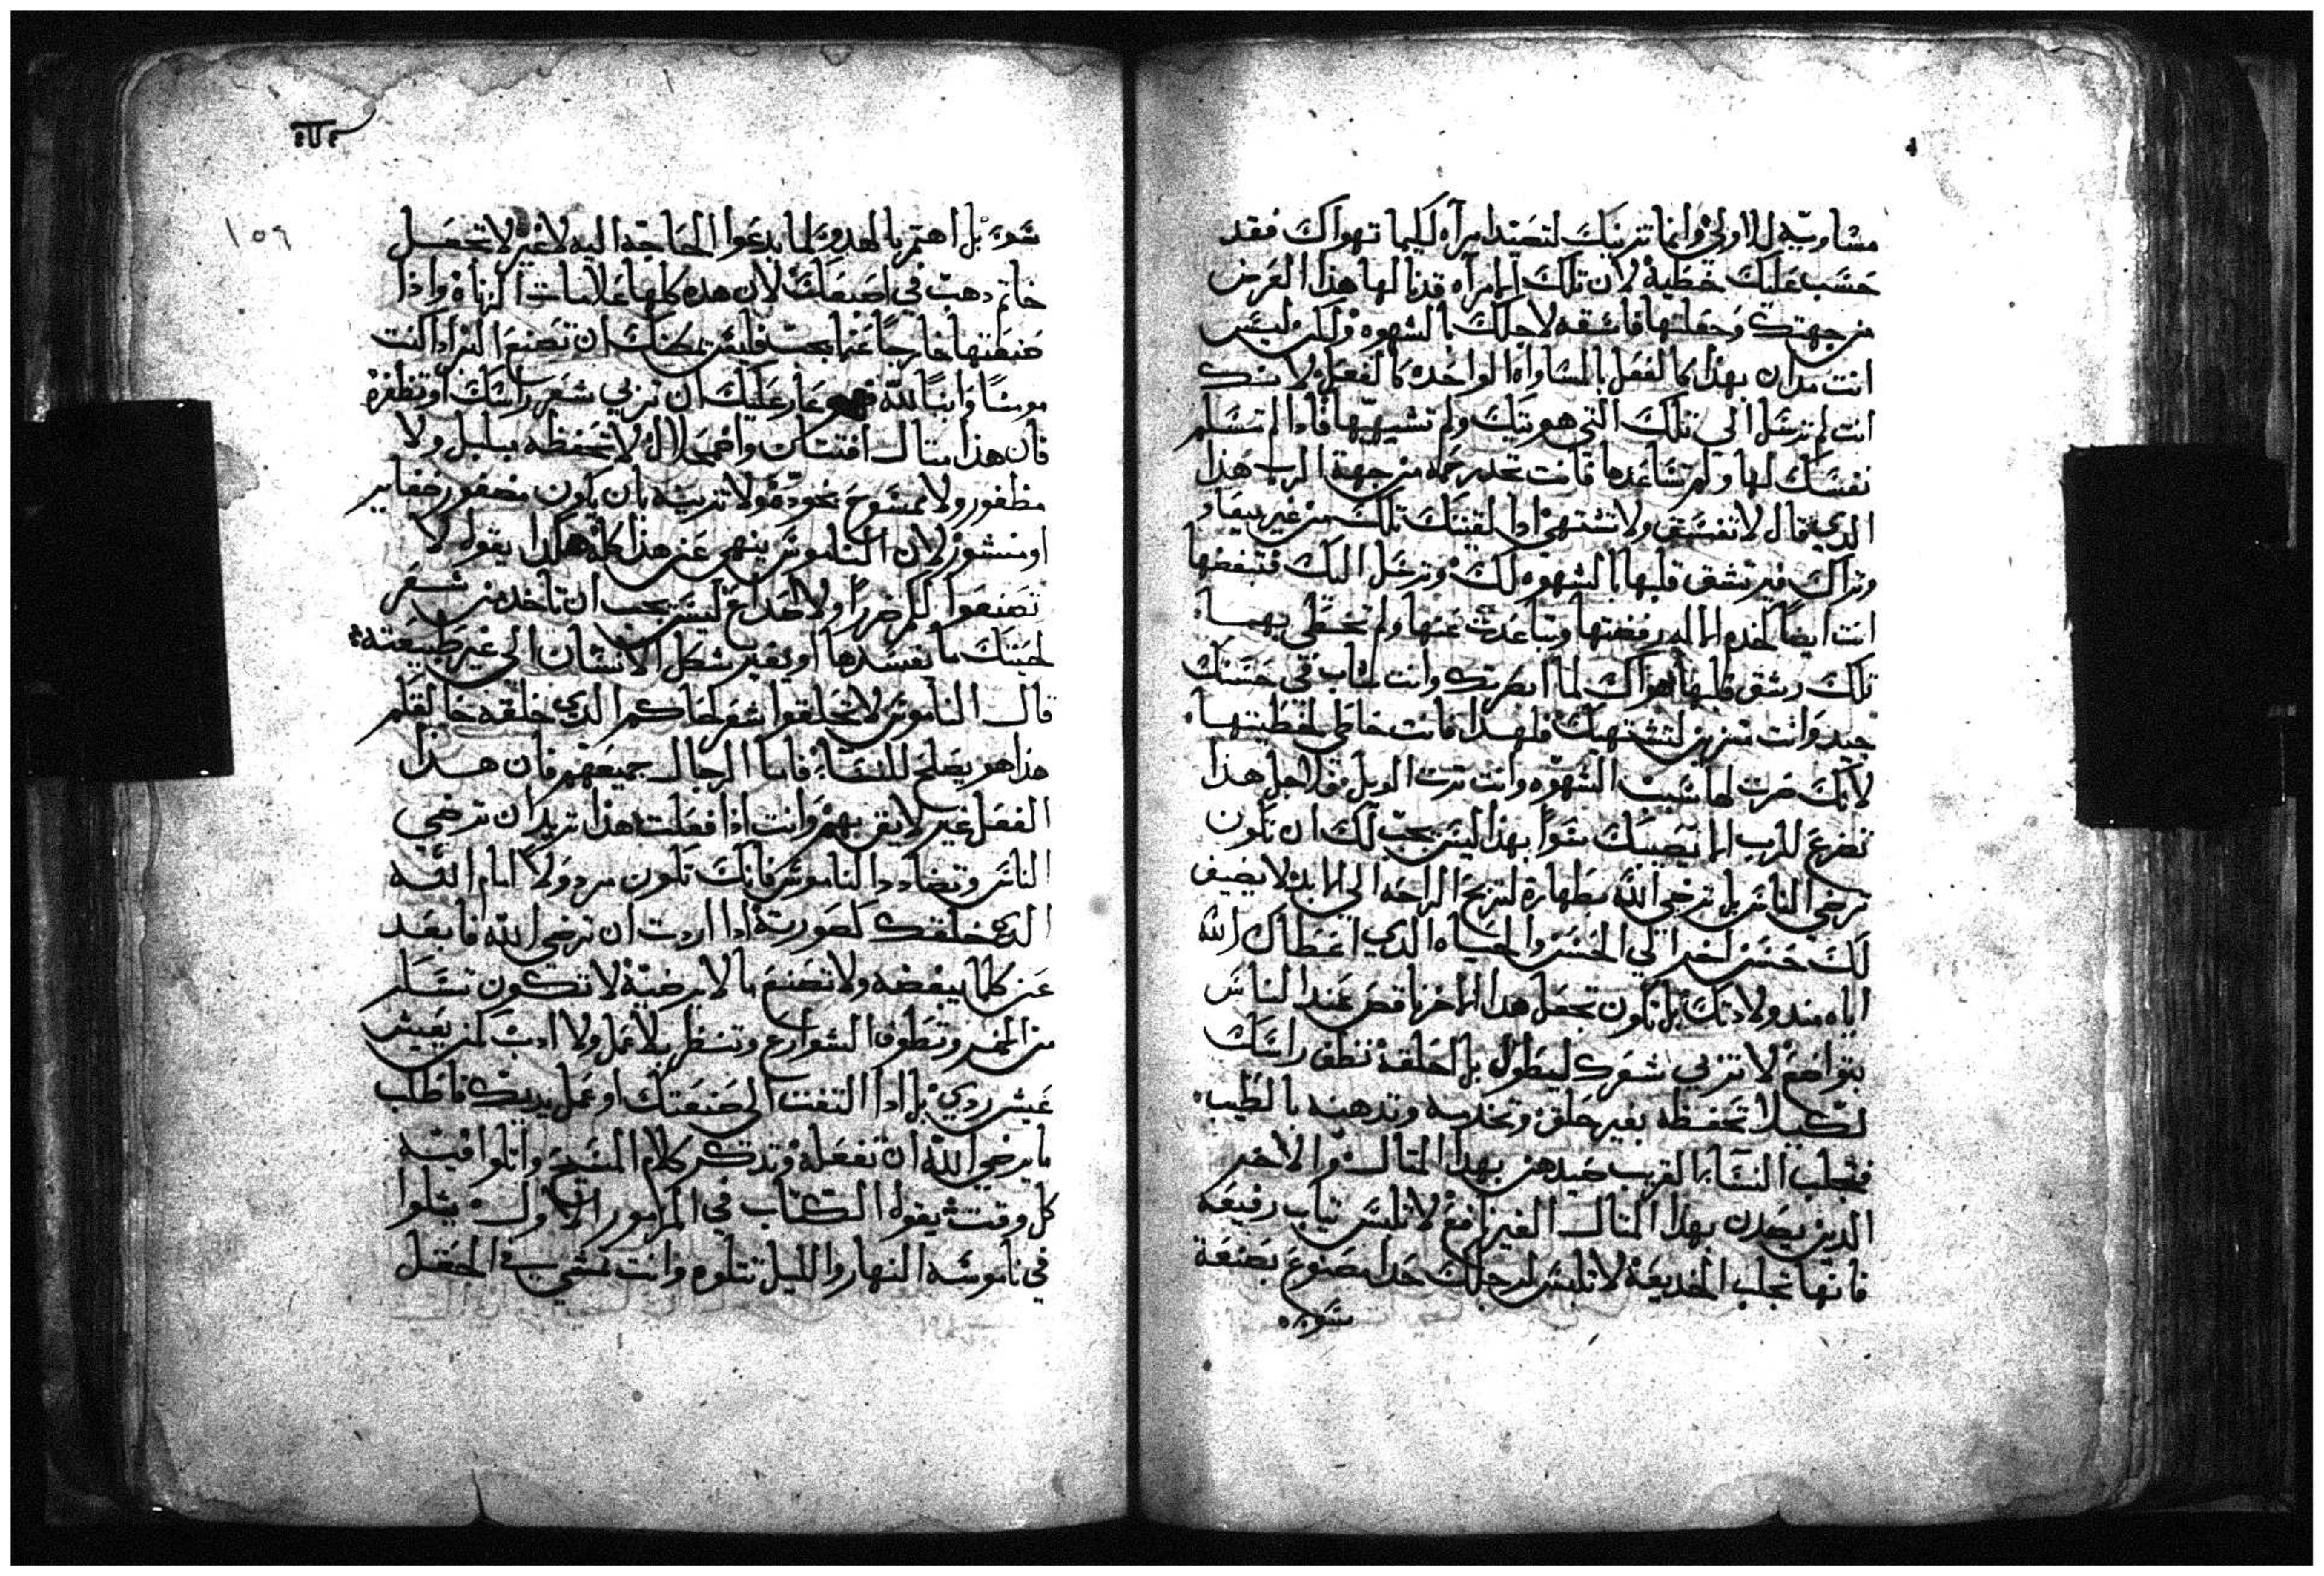 مساويه للاولي وانما تزينك لتصتد امرآه لكيما تهواك فقد
حسب عليك خطية لان تلك الامرآه قد نالها هذا العرض
من جهتك وجعلتها فاسقه لاجلك بالشهوه ولكن ليس
انت مدان بهذا كالفعل بالمساواه الواحده كالفعل لانك
انت لم ترسل الي تلك التي هويتك ولم تشتهيها فاذا لم تسلم
نفسك لها ولم تساعدها فانت تجد رحمه من جهة الرب هذا
الذي قال لا تفسق ولا تشتهي اذا لقيتك تلك من غير ميعاد
وتراك فيرتشق قلبها بالشهوه لك وترسل اليك فتبغضها
انت ايضاً لخدم الاله رفضتها وتباعدت عنها ولم تخطي بهما
تلك رشق قلبها هواك لما ابصرتك وانت شاب في حسنك
جيد وانت تتزين لتشتهيك فلهذا فانت خاطي لخطيتها
لانك صرت لها سبب الشهوه وانت ترت الويل فلاجل هذا
تضرع للرب الا يصيبك سواً بهذا ليس يجب لك ان تكون
ترضي الناس بل ترضي الله بطهارة لتربح الراحه الي الابد لا يضيف
لك حسن اخر الي الحسن والحياه الذي اعطاك الله
اياه منذ ولادتك بل تكون تجعل هذا الاخر ناقص عند الناس
بتواضع لا تربي شعرك ليطول بل احلقه نظف راسك
لكيلا تحفظه بغير حلق وتخدمه وتدهنه بالطيب
فتجلب النسا بالقرب صيدهن بهذا المثال والاخر
الذين يصدن بهذا المثال الغير نافع لا تلبس ثياب رفيعه
فانها تجلب الخديعة لا تلبس لرجلك حذا مصنوع بصنعة
سوء
١٥٩
سوء بل اهتم بالهدو لما يدعوا الحاجه اليه لا غير لا تجعل
خاتم دهب في اصبعك لان هذه كلها علامات الزناه واذا
صنعتها خارجاً عما يجب فليس يمكنك ان تصنع البر اذا كنت
مومناً وابناً لله فهو عار عليك ان تربي شعر راسك او تظفره
فان هذا مثال افتتان واضمحلال لا تحفظه ببلبل ولا
مظفور ولا ممشوح بجوده ولا تزينه بان يكون مضفور ضفاير
او منشور لان الناموس ينهي عن هذا كله هكذا يقول لا
تصنعوا لكم ضرراً ولا خداع ليس يجب ان تاخد من شعر
لحيتك ما يفسدها او يغير شكل الانسان الي غير طبيعته
قال الناموس لا تحلقوا شعر لحاكم الذي خلقه خالقكم
هذا هو يصلح للنساء فاما الرجال جميعهم فان هذا
الفعل غير لايق بهم وانت اذا فعلت هذا تريد ان ترضي
الناس وتضادد الناموس فانك تكون مردولا امام الله
الذي خلقك كصورته اذا اردت ان ترضي الله فابعد
عن كلما يبغضه ولا تصنع ما لا يرضيه لا تكون تسير
من الخير وتطوف الشوارع وتنظر بلا عمل ولا ادب لمن يعيش
عيش ردي بل اذا التفت الي صنعتك او عمل يديك فاطلب
ما يرضي الله ان تفعله وتذكر كلام المسيح واتلوا فيه
كل وقت يقول الكتاب في المزمور الاول يتلوا
في ناموسه النهار والليل تتلوه وانت تمشي في الحقل